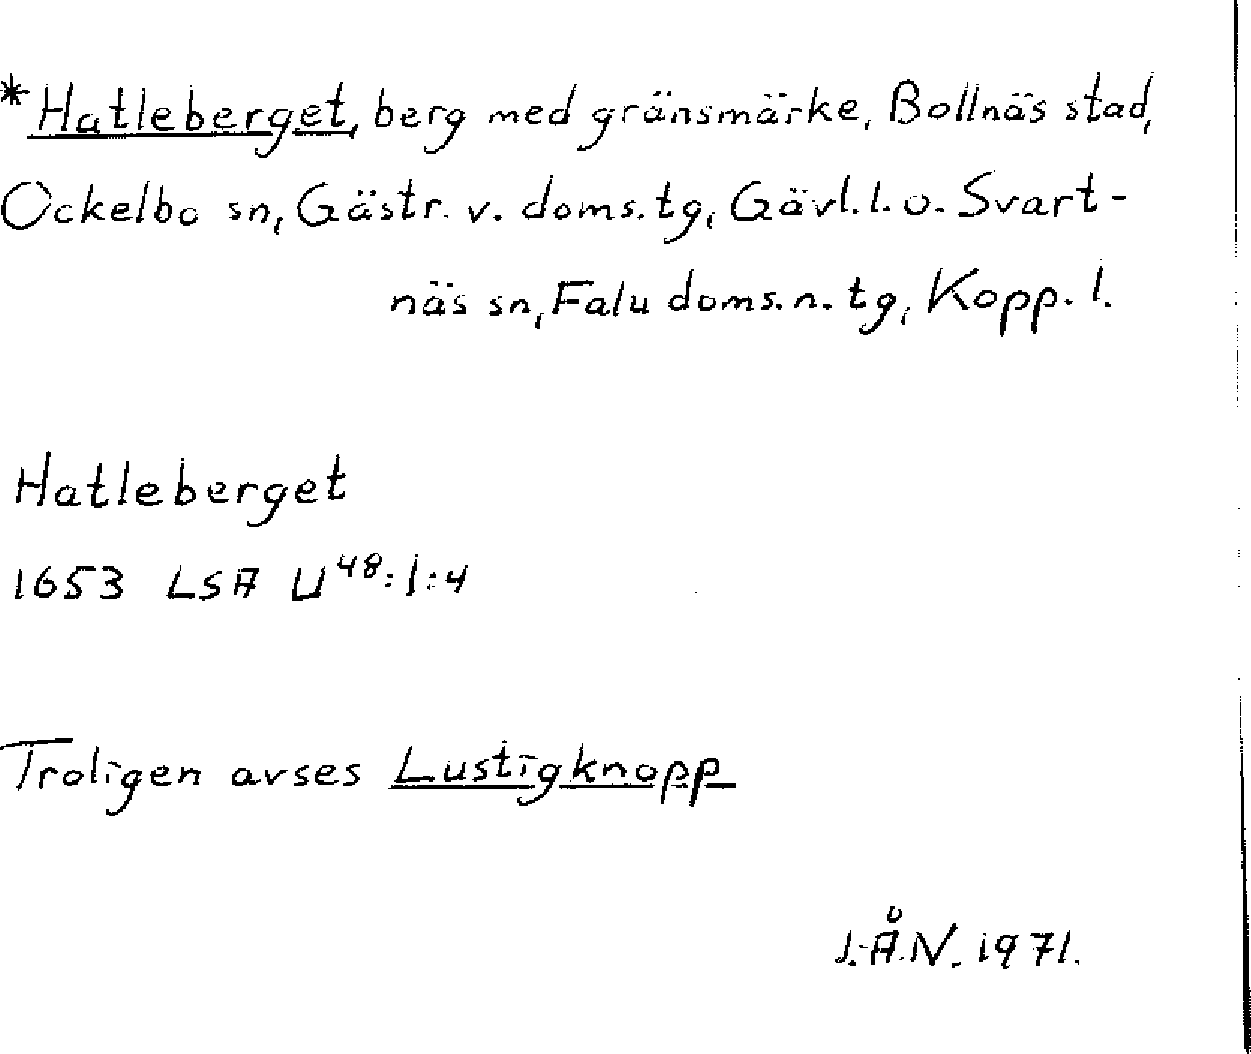 *Hatleberget, berg med gränsmärke, Bollnäs stad,
Ockelbo sn, Gästr. v. doms.tg, Gävl.l. o. Svart-
näs sn, Falu doms.n. tg, Kopp. l.
Hatleberget
1653 LSA U⁴⁸:1:4
Troligen avses Lustigknopp
J.-Å.N. 1971.